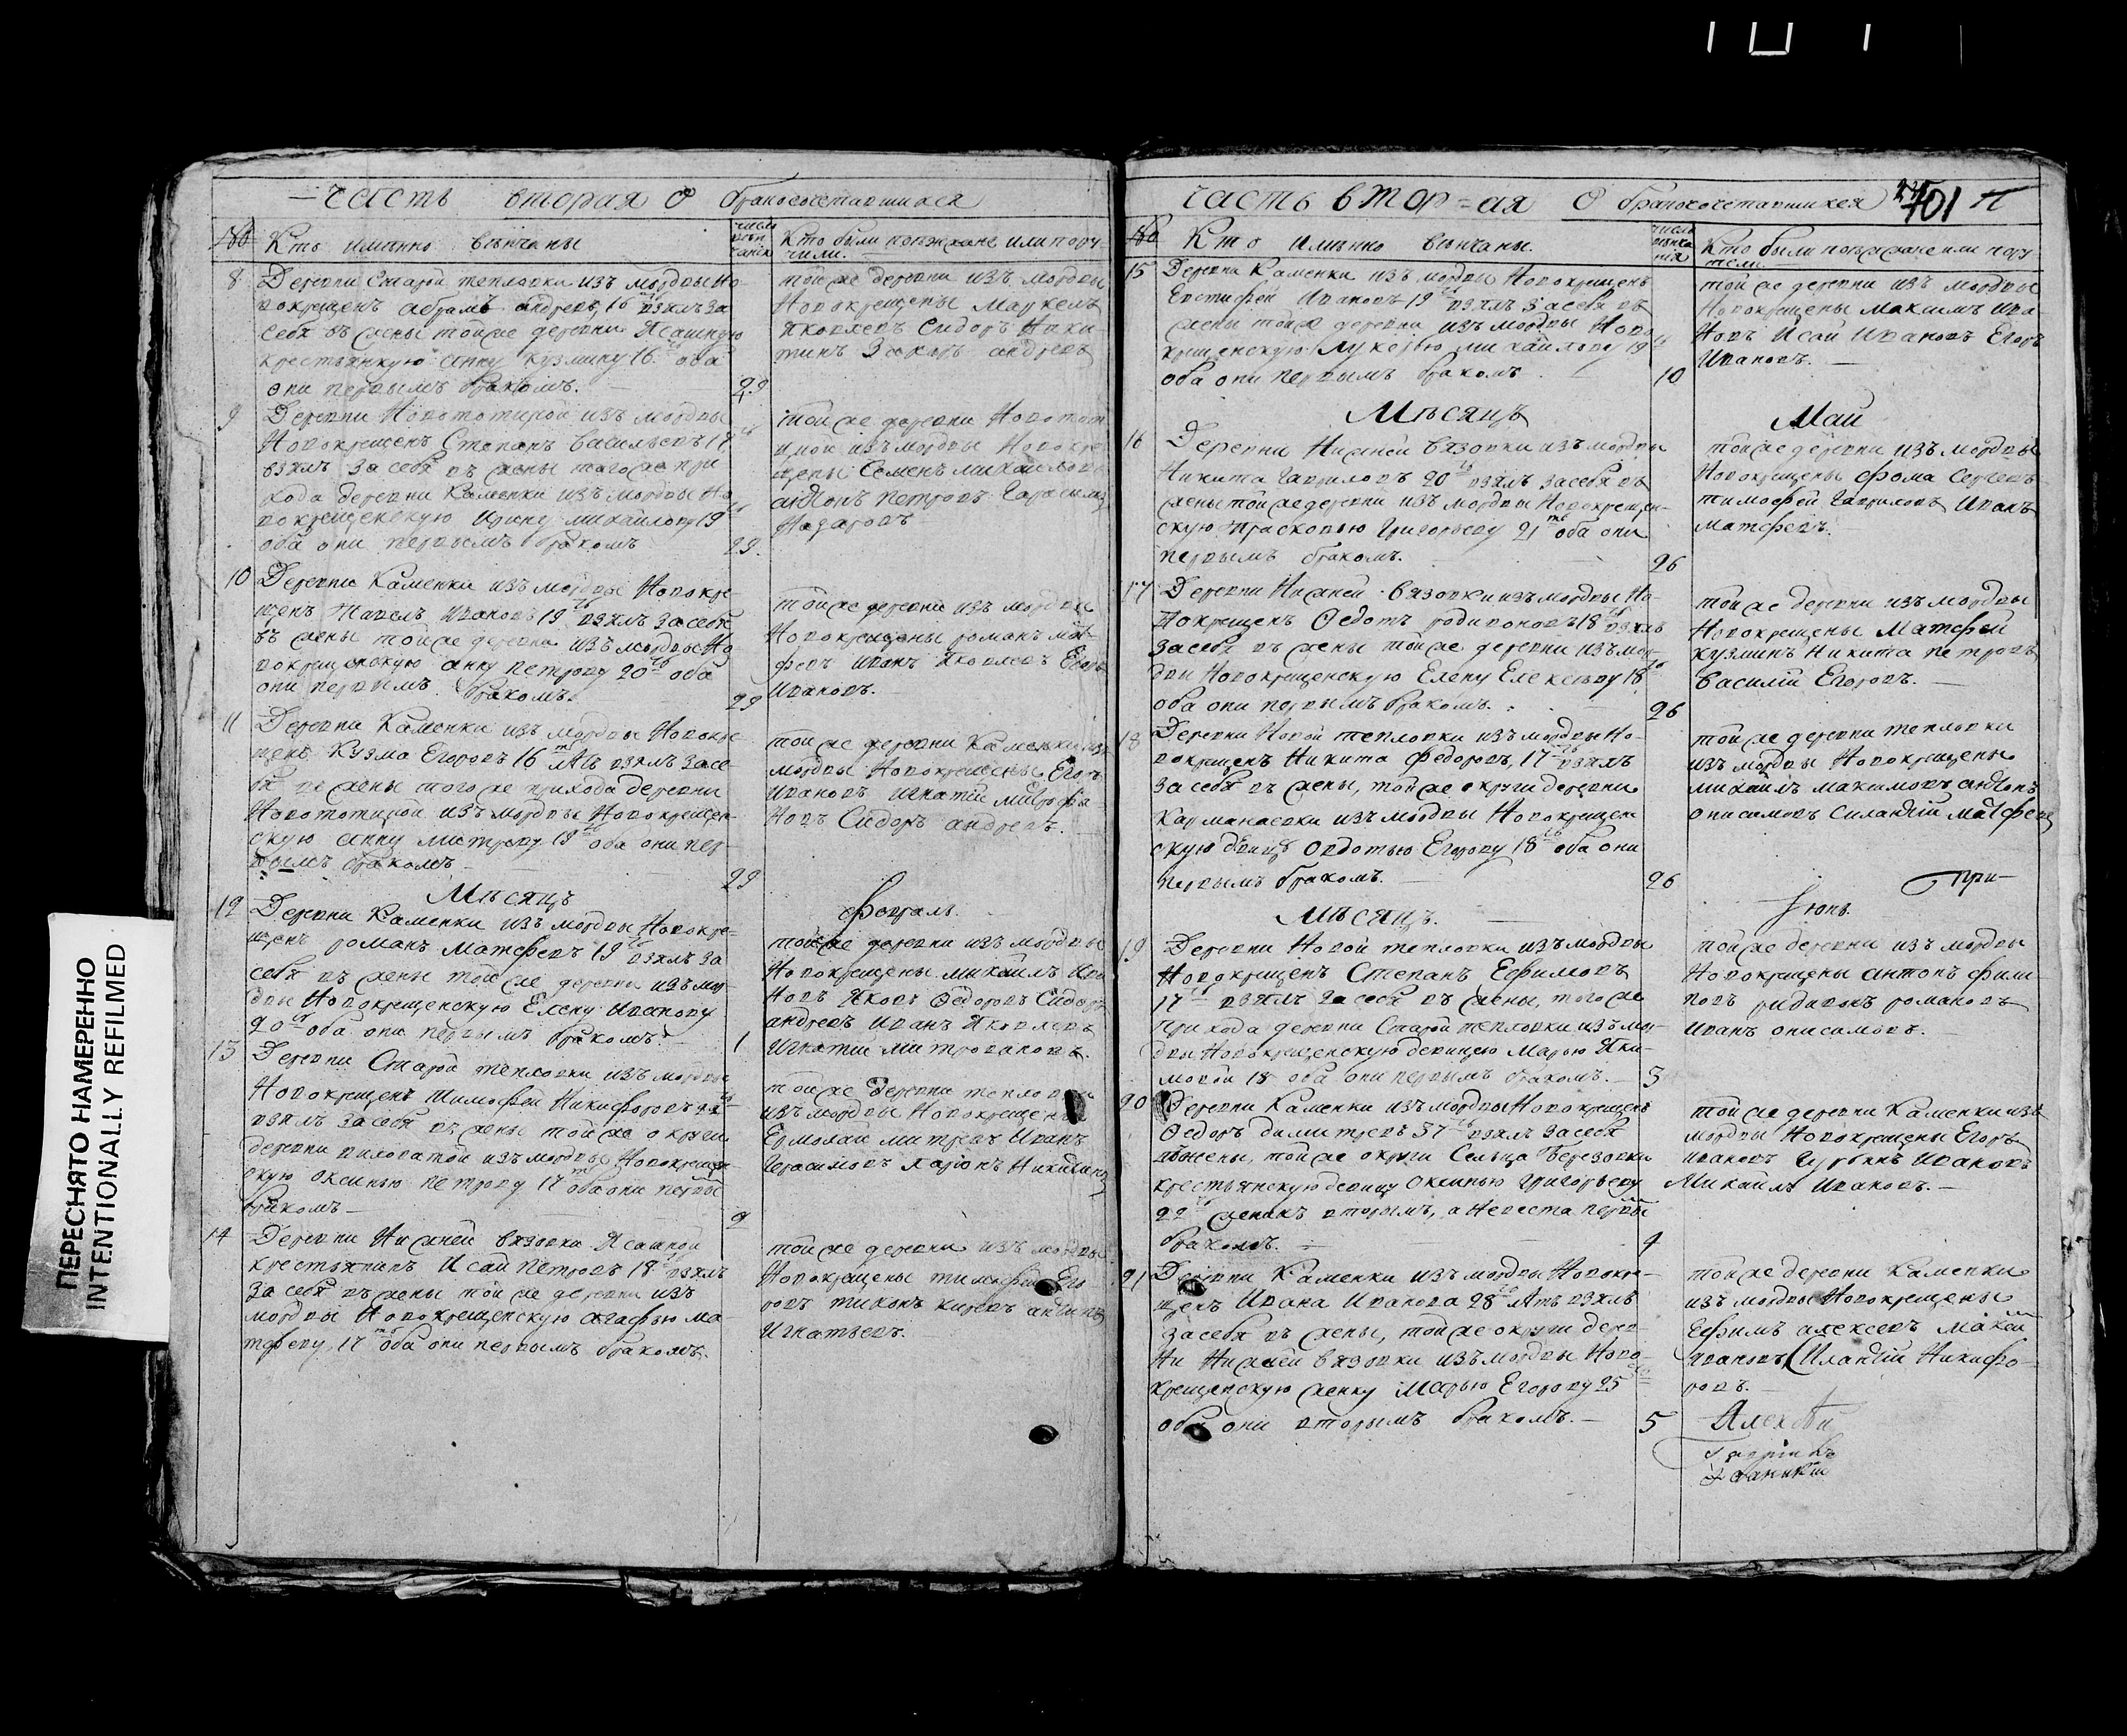 ПЕРЕСНЯТО НАМЕРЕННО
INTENTIONALLY REFILMED
часть вторая о бракосочетавшихся
№ Кто имянно венчаны
число вѣнчания
Кто были поезжане или поручили.
8 Деревни Старой тепловки изъ мордвы но
вокрещенъ абрамъ андреевъ 16 взялъ за
себя въ жены той же деревни Ясашную
крестьянскую анну кузмину 16 оба
они первымъ бракомъ. 29
той же деревни изъ мордвы
Новокрещены Маркелъ
Яковлевъ Сидоръ Ники
тинъ Захаръ андреевъ
9 Деревни изъ мордвы
Новокрещенъ Степанъ Васильевъ
взялъ за себя въ жены того же при
хода деревни Каменки изъ мордвы но
вокрещенскую Ирину михайлову 19
оба они первымъ бракомъ 29.
той же деревни
изъ мордвы Новокре
щены Семенъ михайловъ
антонъ петровъ Гарасимъ
10 Деревни Каменки изъ мордвы Новокре
щенъ Павелъ Ивановъ 19 взялъ за себя
въ жены той же деревни изъ мордвы Но
вокрещенскую анну петрову 20 оба
они первымъ бракомъ. 29
той же деревни изъ мордвы
Новокрещены романъ мат
феевъ иванъ Яковлевъ Егоръ
Ивановъ.
11 Деревни Каменки изъ мордвы Новокре
щенъ Кузма Егоровъ 16 лѣтъ взялъ за се
бя въ жены того же прихода деревни
изъ мордвы Новокрещен
скую анну митреву 19 оба они пер
вымъ бракомъ 29
той же деревни Каменки изъ
мордвы Новокрещены Егоръ
Ивановъ Игнатей митрофа
новъ Сидоръ андреевъ.
Мѣсяцъ Февраль.
12 Деревни Каменки изъ мордвы Новокре=
щенъ романъ Матфеевъ 19 взялъ за
себя въ жены той же деревни изъ мор
двы Новокрещенскую Елену Иванову
20 оба они первымъ бракомъ. 1
той же деревни изъ мордвы
Новокрещены михайлъ Ива
новъ Яковъ Федоровъ Сидоръ
андреевъ Иванъ Яковлевъ
Игнатей митрофановъ.
13 Деревни Старой тепловки изъ мордвы
Новокрещенъ Тимофей Никифоровъ
взялъ за себя въ жены той же округи
деревни изъ мордвы Новокрещен
скую оксинью петрову 17 оба они первымъ
бракомъ 9
той же деревни тепловки
изъ мордвы Новокрещены
Ермолай митревъ Иванъ
Герасимовъ ларионъ Никитинъ
14 Деревни Нижней вязовки Ясашной
крестьянинъ Исай Петровъ 18 взялъ
за себя въ жены той же деревни изъ
мордвы Новокрещенскую агафью ма
тфееву 17 оба они первымъ бракомъ.
той же деревни изъ мордвы
Новокрещены тимофей Его
ровъ
Игнатьевъ.
часть втор=ая о бракосочетавшихся 701
№ Кто имянно венчаны.
число вѣнчания
Кто были поезжане или пору
тели.
15 Деревни Каменки изъ мордвы Новокрещенъ
Евстифей Ивановъ 19 взялъ за себя въ
жены той же деревни изъ мордвы Ново
крещенскую Лукерью михайлову 19
оба они первымъ бракомъ 10
той же деревни изъ мордвы
Новокрещены Максимъ Ива
новъ Исай Ивановъ Егоръ
Ивановъ.
Мѣсяцъ Май
16 Деревни Нижней Вязовки изъ мордвы
Никита Гавриловъ 20 взялъ за себя въ
жены той же деревни изъ мордвы Новокрещен-
скую прасковью Григорьеву 21 оба они
первымъ бракомъ. 26
той же деревни изъ мордвы
Новокрещены фома Сергеевъ
тимофей Гавриловъ Иванъ
Матфеевъ.
17 Деревни Нижней Вязовки изъ мордвы Но-
вокрещенъ Федотъ родивоновъ 18 взялъ
за себя въ жены той же деревни изъ мор-
двы Новокрещенскую Елену Елексееву 18
оба они первымъ бракомъ. 26
той же деревни изъ мордвы
Новокрещены Матфей
кузминъ Никита петровъ
Василий Егоровъ.
18 Деревни Новой тепловки изъ мордвы Но-
вокрещенъ Никита Федоровъ, 17 взялъ
за себя въ жены, той же округи деревни
Кармалаевки изъ мордвы Новокрещен
скую девицу овдотью Егорову 18 оба они
первымъ бракомъ. 26
той же деревни тепловки
изъ мордвы Новокрещены
михайлъ максимовъ антонъ
онисимовъ Силантий матфеевъ
При-
Мѣсяцъ. Июнь.
19 Деревни Новой тепловки изъ мордвы
Новокрещенъ Степанъ Ефимовъ
17 взялъ за себя въ жены, того же
прихода деревни Старой тепловки изъ мор-
двы Новокрещенскую девицею Марью Яки-
мовой 18 оба они первымъ бракомъ. 3
той же деревни изъ мордвы
Новокрещены антонъ фили
повъ родивонъ романовъ
Иванъ онисимовъ.
20 Деревни Каменки изъ мордвы Новокрещенъ
Федоръ димитревъ 37 взялъ за себя
въ жены, той же округи Сельца Березовки
крестьянскую девицу оксинью Григорьеву
22 женихъ вторымъ, а невеста первымъ
бракомъ. 4
той же деревни Каменки изъ
мордвы Новокрещены Егоръ
Ивановъ Гурьянъ Ивановъ
Михайлъ Ивановъ.
21 Деревни Каменки изъ мордвы Новокре-
щенъ Ивана Иванова 28 лѣтъ взялъ
за себя въ жены, той же округи дерев-
ни Нижней вязовки изъ мордвы Ново-
крещенскую женку Марью Егорову 25
оба они вторымъ бракомъ. 5
той же деревни Каменки
изъ мордвы Новокрещены
Ефимъ алексеевъ
Ивановъ Силантий Никифо-
ровъ.